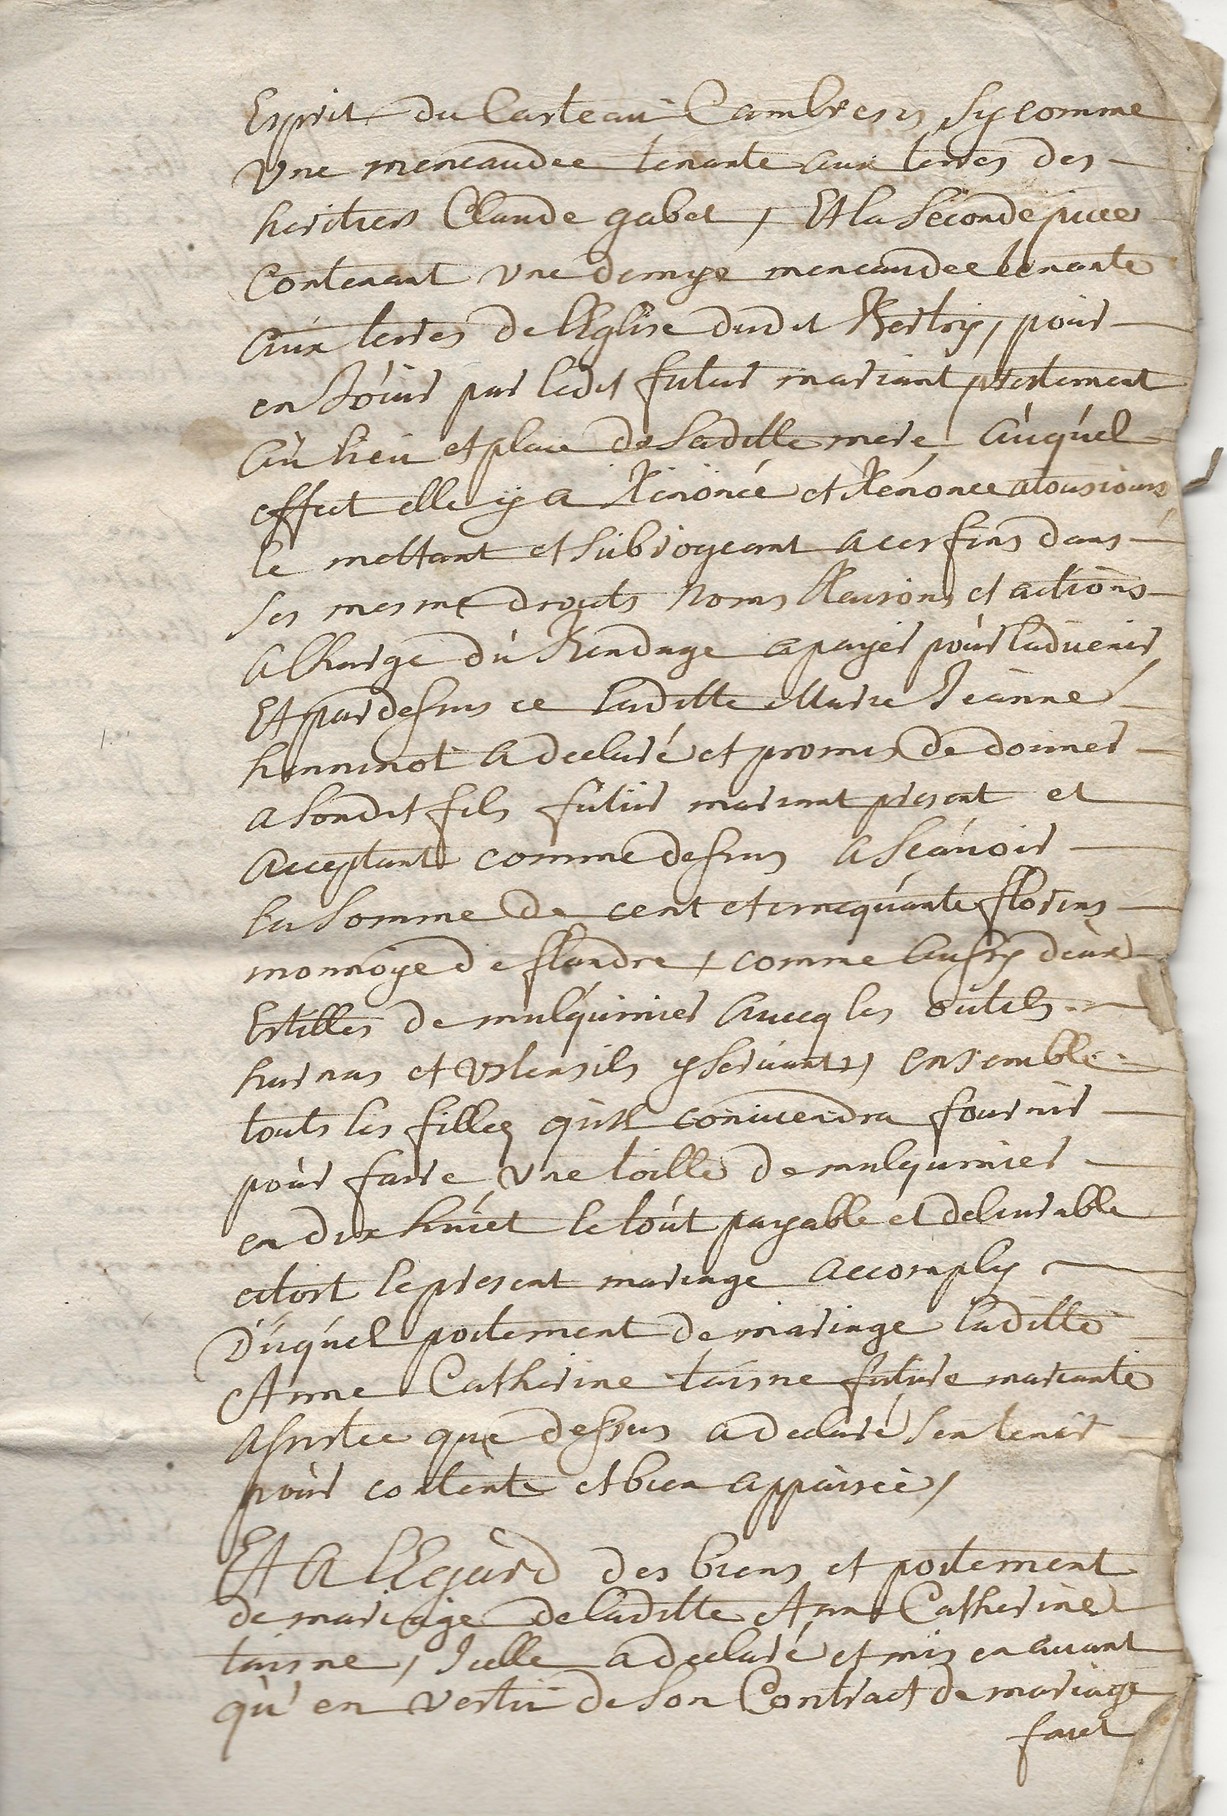 Esprit du Casteau Cambresis, Sy comme
Une mencaudee tenante aux terres des
heritiers Claude gabet, Et la Seconde piece
Contenant Une demye mencaudee tenante
aux terres de l'Eglise dudit Bertry, pour
en Joüir par ledit futur mariant prestement
au lieu et place de Saditte mere, auquel
effect elle y a Renoncé et Renonce a tousiours
le mettant et Subrogeant a ces fins dans
Ses mesme droits Noms Raisons et actions
a Charge du Rendage a payer pour ladvenir
Et par dessus ce laditte Marie Jeanne
henninot a declaré et promis de donner
a Sondit fils futur mariant present et
acceptant comme dessus a Scavoir
la Somme de cent et cincquante florins
monnoye de flandre, comme aussy deux
Estilles de mulquinier avecq les outils
harnas et Ustensils y Servants, ensemble
touts les filletz qu'il conviendra fournir
pour faire Une toille de mulquinier
en dix huict le tout payable et delivrable
aitost le present mariage accomply
Duquel portement de mariage laditte
Anne Catherine taisne future mariante
assistee que dessus a declaré S'en tenir
pour contente et bien appaisée,
Et A l'Egard des biens et portement
de mariage de laditte Anne Catherine
taisne, Icelle a declaré et mis en avant
qu'en vertu de Son Contract de mariage
faict